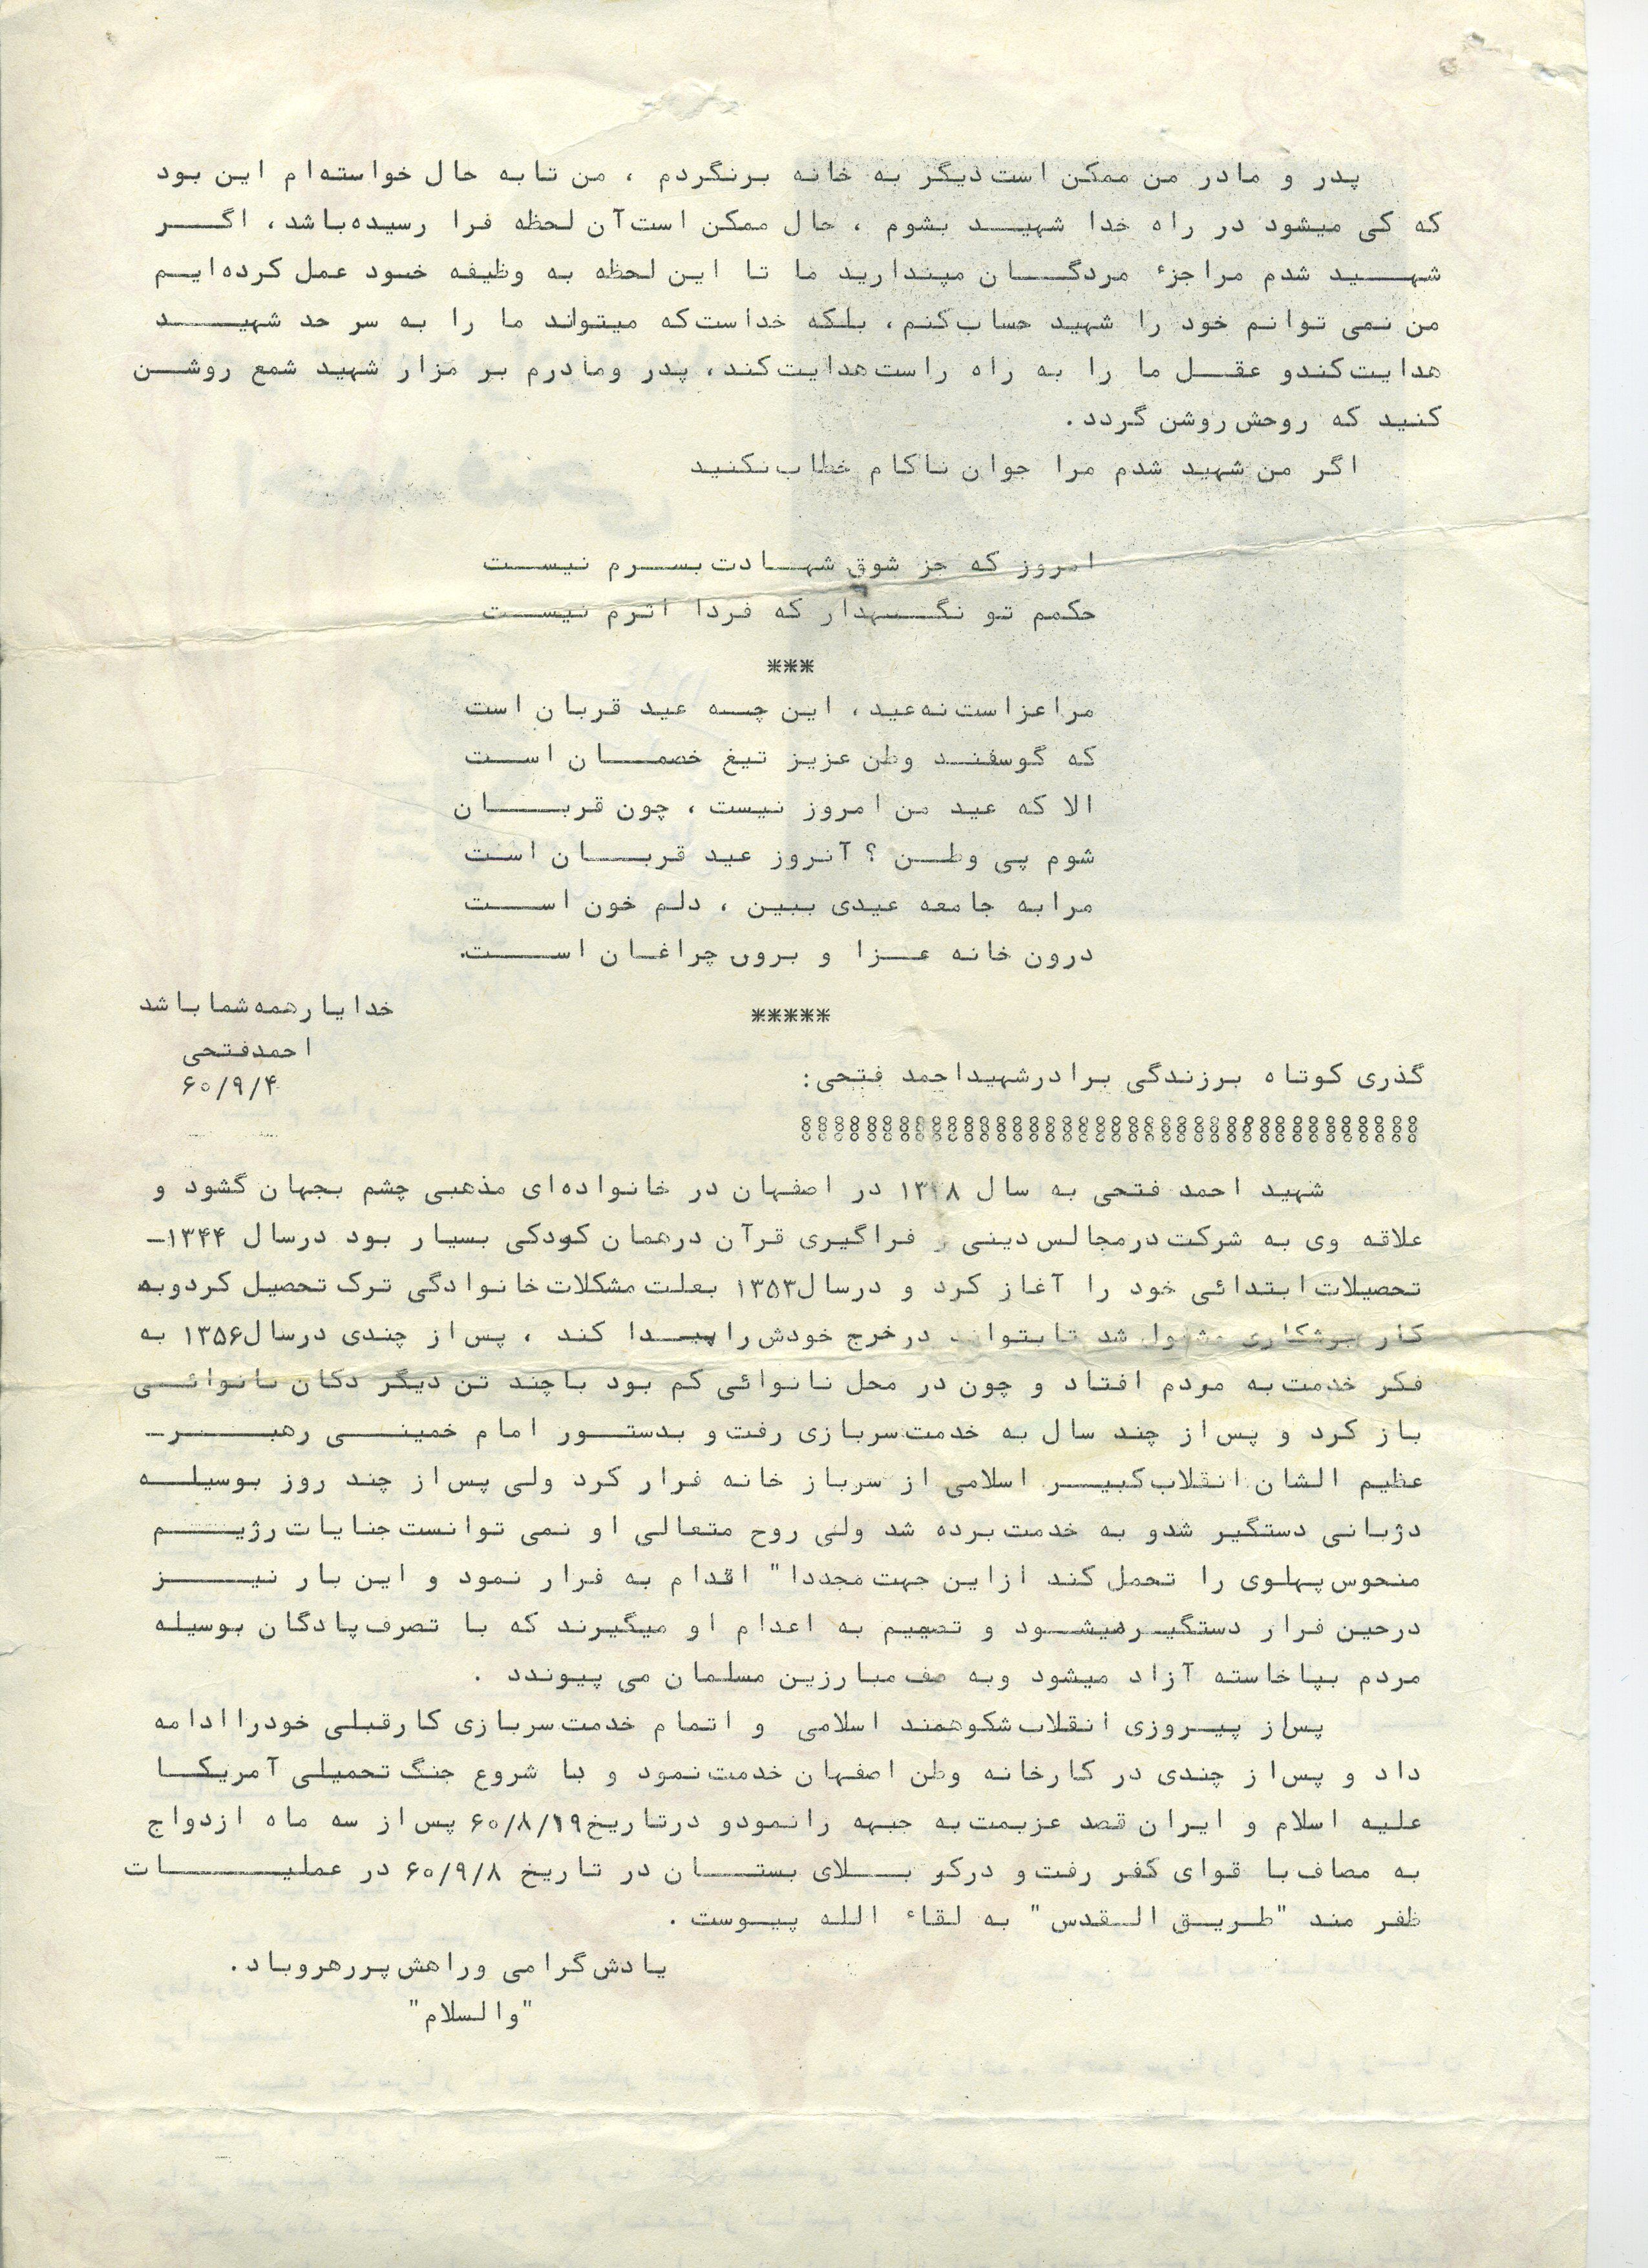 پدر و مادر من ممکن است دیگر به خانه برنگردم ، من تا به حال خواسته‌ام این بود
که کی میشود در راه خدا شهید بشوم ، حال ممکن است آن لحظه فرا رسیده باشد، اگر
شهید شدم مرا جزء مردگان مپندارید ما تا این لحظه به وظیفه خود عمل کرده‌ایم
من نمی توانم خود را شهید حساب کنم، بلکه خداست که میتواند ما را به سر حد شهید
هدایت کندو عقل ما را به راه راست هدایت کند، پدر ومادرم بر مزار شهید شمع روشن
کنید که روحش روشن گردد.
اگر من شهید شدم مرا جوان ناکام خطاب نکنید
امروز که جز شوق شهادت بسرم نیست
حکمم تو نگهدار که فردا اثرم نیست
***
مرا عزاست نه عید، این چه عید قربان است
که گوسفند وطن عزیز تیغ خصمان است
الا که عید من امروز نیست ، چون قربان
شوم پی وطن ؟ آنروز عید قربان است
مرا به جامعه عیدی ببین ، دلم خون است
درون خانه عزا و برون چراغان است.
*****
خدا یار همه شما باشد
احمد فتحی
۶۰/۹/۴
گذری کوتاه برزندگی برادرشهیداحمد فتحی:
شهید احمد فتحی به سال در اصفهان در خانواده‌ای مذهبی چشم بجهان گشود و
علاقه وی به شرکت درمجالس دینی و فراگیری قرآن درهمان کودکی بسیار بود درسال ۱۳۴۴-
تحصیلات ابتدائی خود را آغاز کرد و درسال۱۳۵۳ بعلت مشکلات خانوادگی ترک تحصیل کردوبه
کار جوشکاری مشغول شد تابتواند درخرج خودش راپیدا کند ، پس از چندی درسال۱۳۵۶ به
فکر خدمت به مردم افتاد و چون در محل نانوائی کم بود باچند تن دیگر دکان نانوائی
باز کرد و پس از چند سال به خدمت سربازی رفت و بدستور امام خمینی رهبر-
عظیم الشان انقلاب کبیر اسلامی از سرباز خانه فرار کرد ولی پس از چند روز بوسیله
دژبانی دستگیر شدو به خدمت برده شد ولی روح متعالی او نمی توانست جنایات رژیم
منحوس پهلوی را تحمل کند ازاین جهت مجددا" اقدام به فرار نمود و این بار نیز
درحین فرار دستگیرمیشود و تصمیم به اعدام او میگیرند که با تصرف پادگان بوسیله
مردم بپاخاسته آزاد میشود وبه صف مبارزین مسلمان می پیوندد .
پس از پیروزی انقلاب شکوهمند اسلامی و اتمام خدمت سربازی کارقبلی خودرا ادامه
داد و پس از چندی در کارخانه وطن اصفهان خدمت نمود و با شروع جنگ تحمیلی آمریکا
علیه اسلام و ایران قصد عزیمت به جبهه رانمودو درتاریخ۶۰/۸/۱۹ پس از سه ماه ازدواج
به مصاف با قوای کفر رفت و درکربلای بستان در تاریخ ۶۰/۹/۸ در عملیات
ظفر مند "طریق القدس" به لقاء الله پیوست .
یادش گرامی وراهش پررهروباد.
"والسلام"